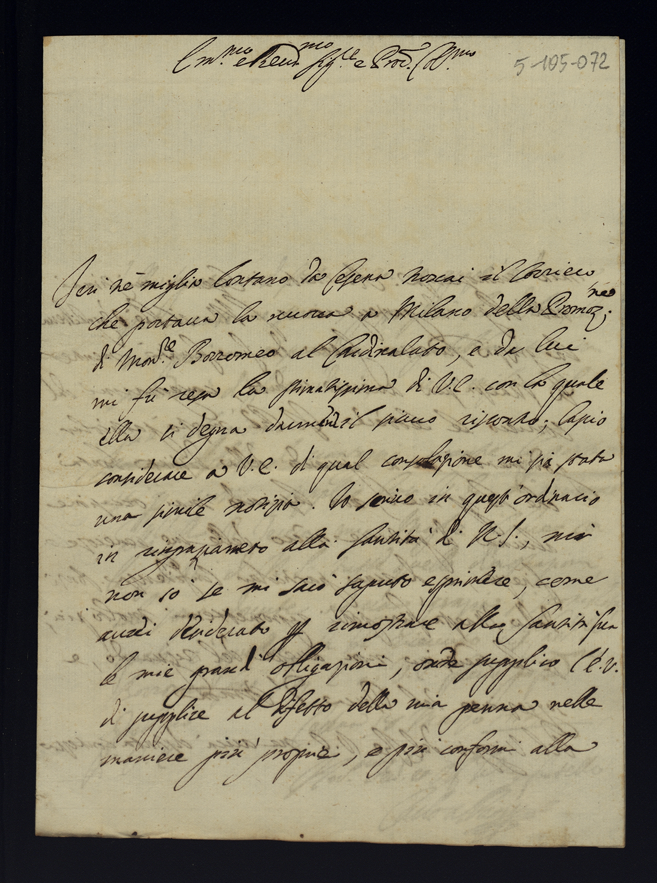 Em.mo e Reu.mo Sig.re e Pro.ñe Col.mo
5-105-072
Jeri trè miglia lontano da Cesena trouai il Corriero
che portaua la nuoua a Milano della Promoz.ne
di Mons.re Borromeo al Cardinalato, e da lui
mi fù resa la stimatissima di V.E. con la quale
ella si degna darmene il pieno riscontro; lascio
considerare a V.E. di qual consolazione mi sia stata
una simile notizia. Io scriuo in quest'ordinario
in ringraziamento alla Santità di N.S., mà
non sò se mi sarò saputo esprimere, come
auerei desiderato per rimostrare alla Santità sua
le mie grandi obligazioni, onde supplico l'E.V.
di supplire al difetto della mia penna nelle
maniere più proprie, e più conformi alla